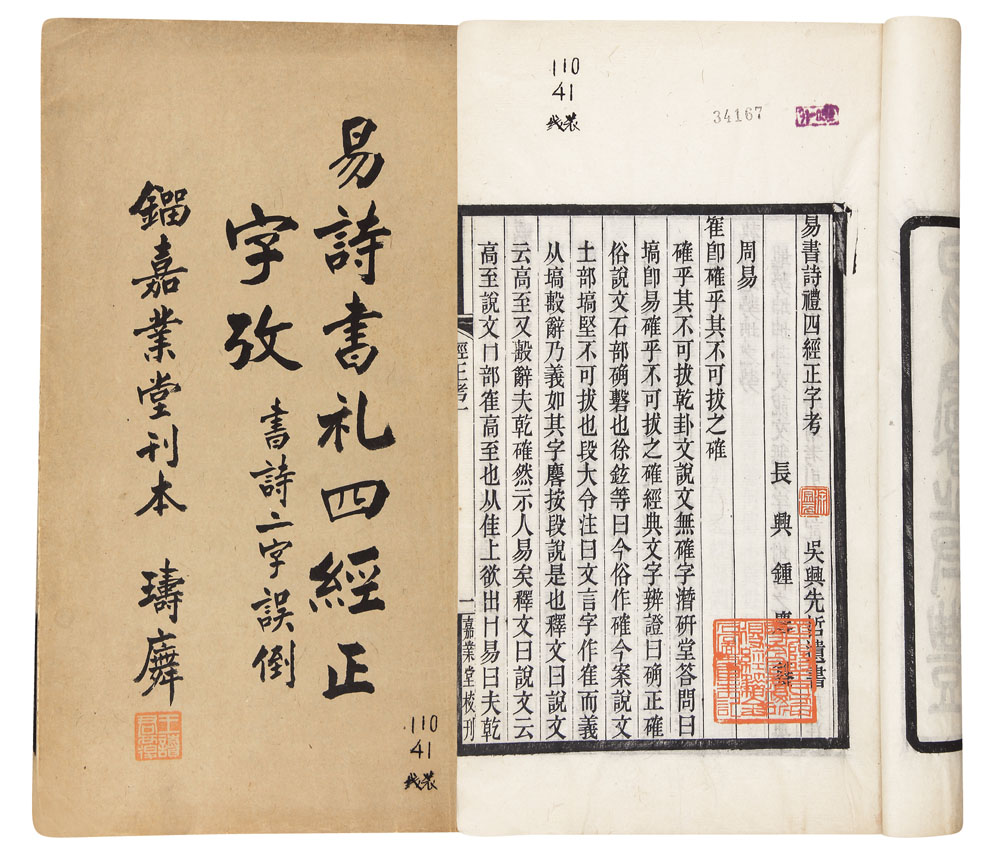 易詩書礼四經正
字攷
書詩二字誤倒
鎦嘉業堂刊本
110
41
线装
110
41
线装
34167
易書詩禮四經正字考 吳興先哲遺書
長興鍾麐
周易
寉卽確乎其不可拔之確
確乎其不可拔乾卦文說文無確字潛研堂答問曰
塙卽易確乎不可拔之確經典文字辨證曰确正確
俗說文石部确磬也徐鉉等曰今俗作確今案說文
土部塙堅不可拔也段大令注曰文言字作寉而義
从塙繫辭乃義如其字麐按段說是也釋文曰說文
云高至又繫辭夫乾確然示人易矣釋文曰說文云
高至說文冂部寉高至也从隹上欲出冂易曰夫乾
經正考一
一 嘉業堂校刊